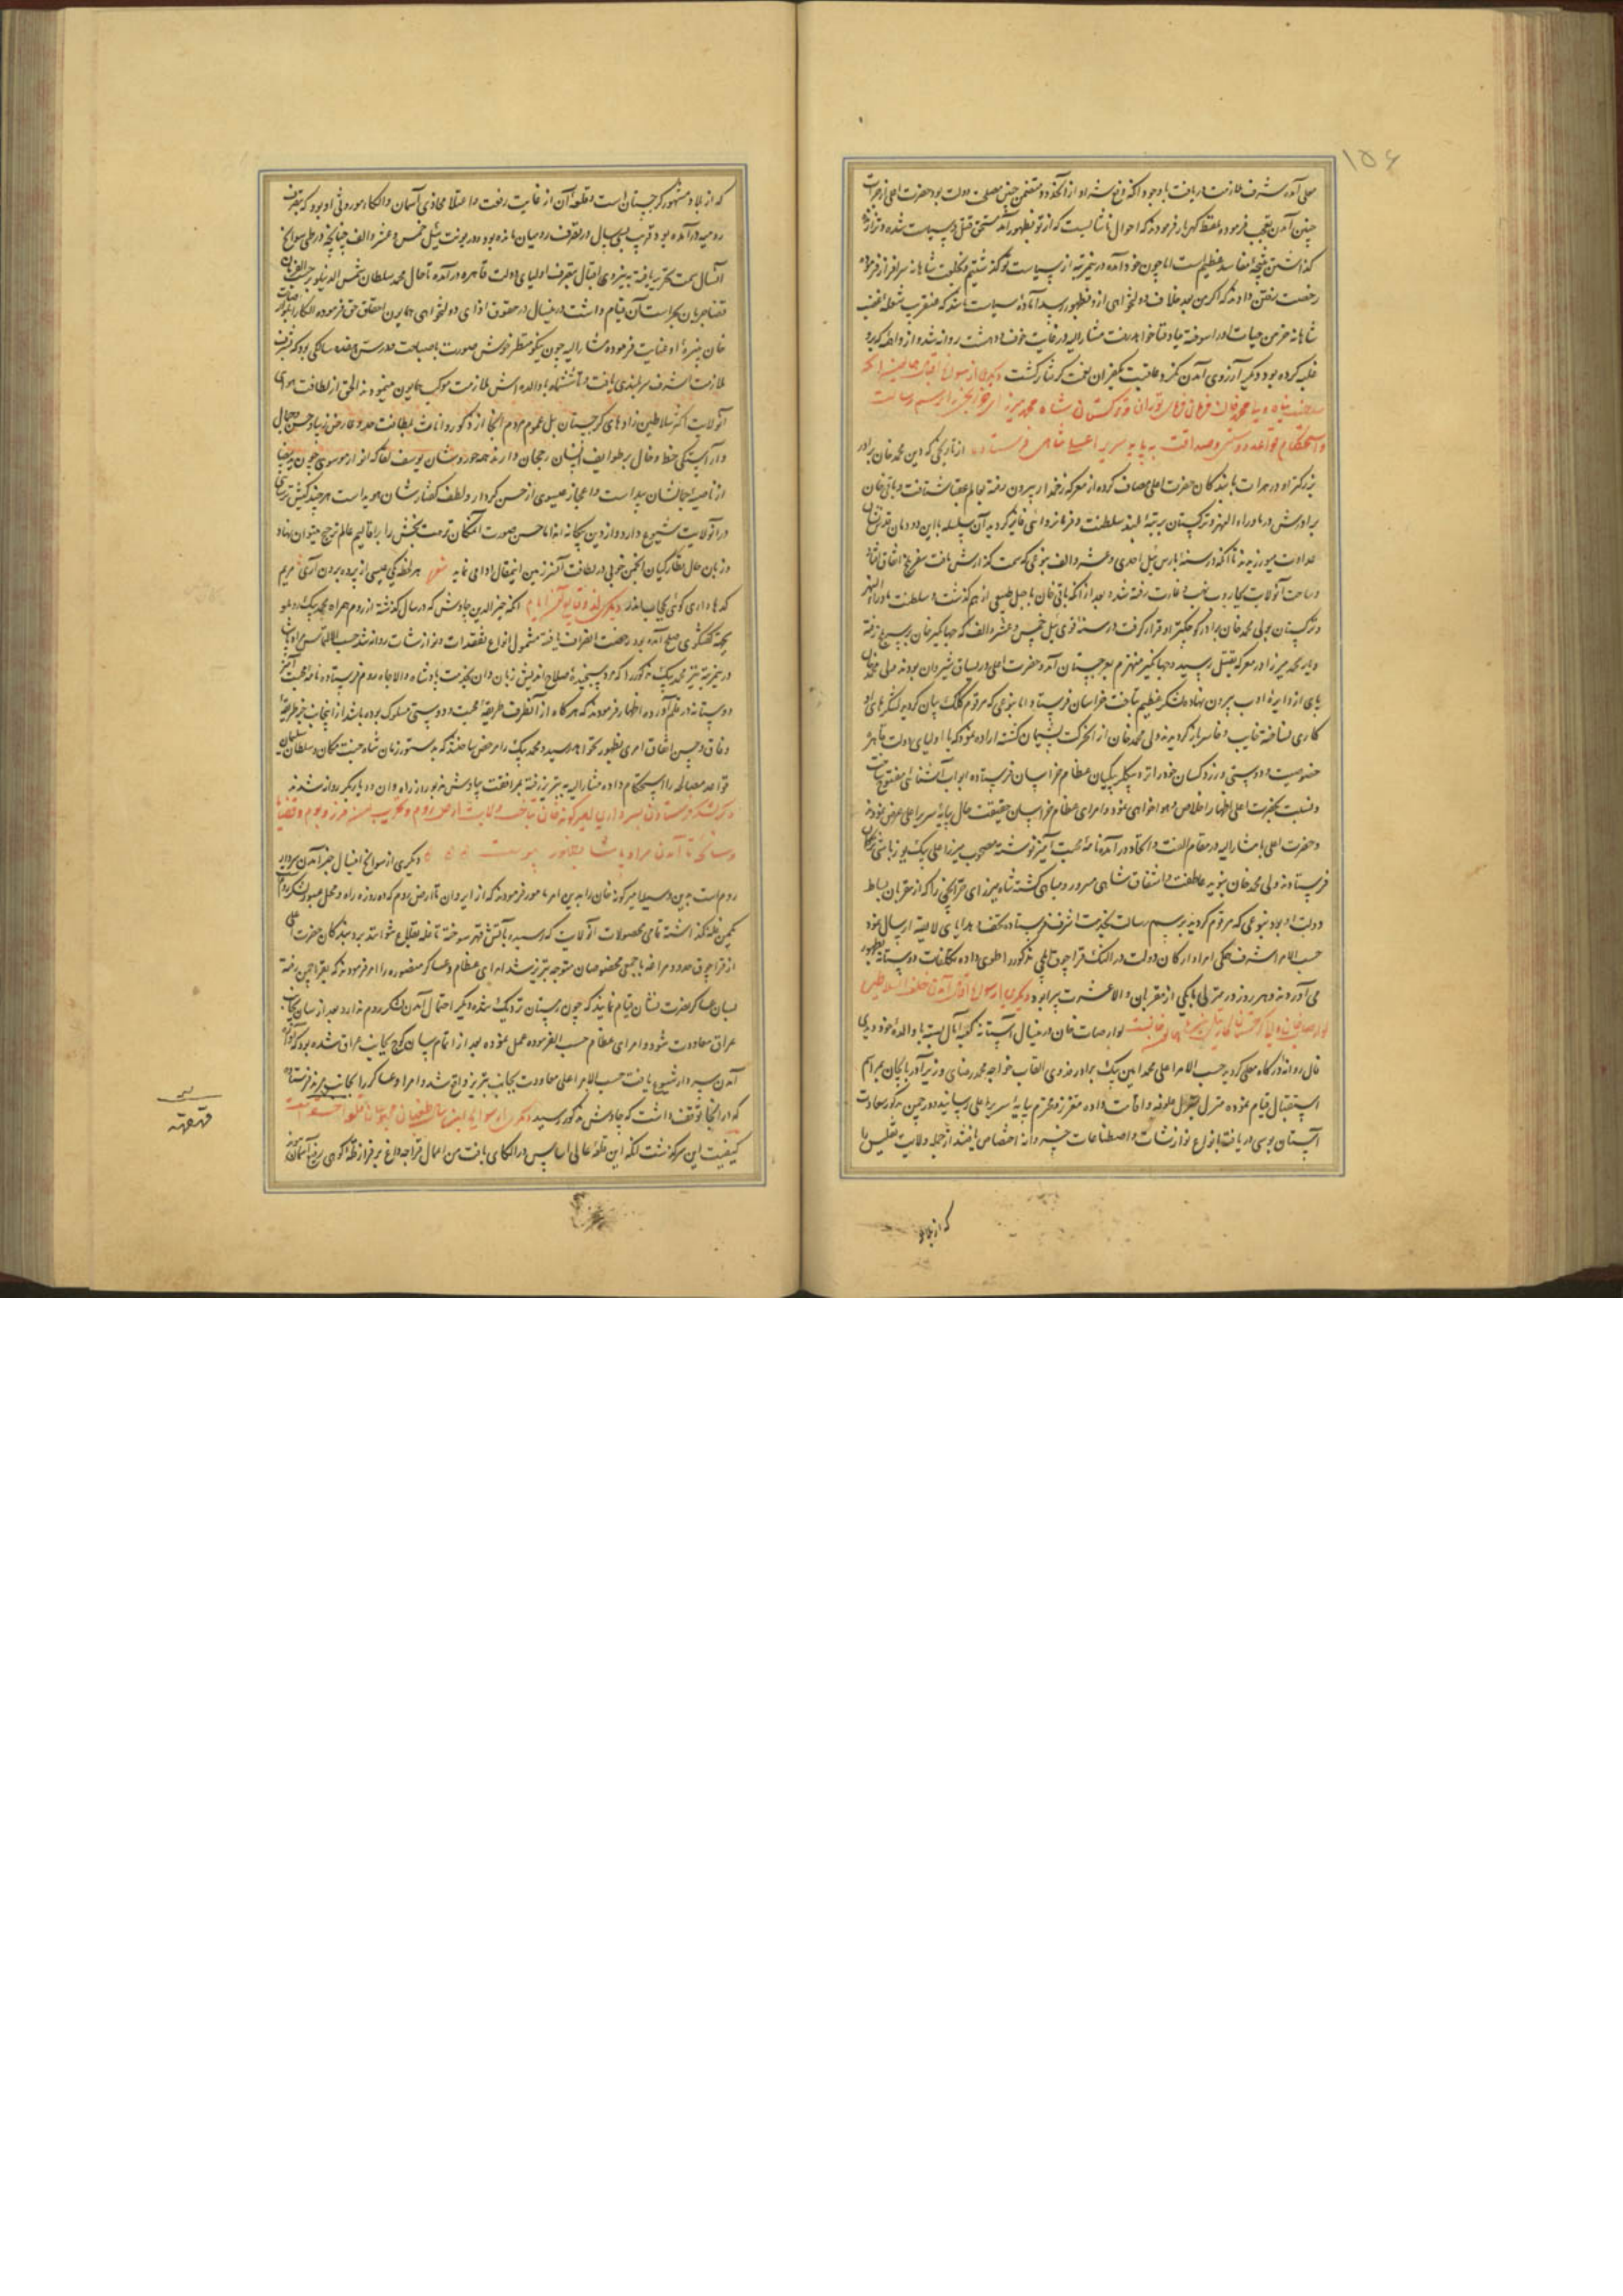 ۱۵۶
معلی آورده شرف ملازمت دریافت با وجود آنکه وقوع
چنین آمدن تعجب فرموده بلفظ گهربار فرمودند که احوال ناشایست که از تو بظهور آمده مستحق قتل و سیاست شده و ترا زنده
گذاشتن نتیجه مفاسد عظیم است اما چون خود آمده درین مرتبه از سیاست تو گذشتیم و بخلعت شاهانه سرافراز فرموده
رخصت رفتن دادند که اگر من بعد خلاف دولتخواهی ازو بظهور رسد آماده سیاست باشد که عنقریب شعله غضب
شاهانه خرمن حیات او را سوخته بباد فنا خواهد رفت مشارالیه در غایت خوف و دهشت روانه شد و از واهمه که برو
غلبه کرده بود دیگر آرزوی آمدن نکرد و عاقبت بکفران نعمت گرفتار گشت دیگری از سوانح اقبال
محمد خان فرمان فرمای توران و ترکستان شاه محمد میرزا برسم رسالت
و استحکام قواعد دوستی و صداقت به پایه سریر اعلی شاهی فرستاده از تاریخی که دین محمد خان برادر
بزرگتر او در هرات با بندگان حضرت اعلی مصاف کرده از معرکه زخمدار بیرون رفته بعالم عقبا شتافت و باقی خان
برادرش در ماوراءالنهر و ترکستان برتبه بلند سلطنت و فرمانروائی فایز گردید آن سلسله با این دودمان
عداوت میورزیدند تا آنکه در سنه بارس ئیل احدی و عشر و الف بنوعی که سمت گذارش یافت سفر بلخ اتفاق افتاد
و ساحت آن ولایت بجاروب نهب و غارت رفته شد و بعد از آنکه باقی خان باجل طبیعی از هم گذشت و سلطنت ماوراءالنهر
و ترکستان بولی محمد خان برادر کوچکتر او قرار گرفت در سنه قوی ئیل خمس و عشر و الف که جهانگیر خان بر سر بلخ رفته
و یار محمد میرزا در معرکه بقتل رسید و جهانگیر منهزم بغرجستان آمد و حضرت اعلی در یساق شیروان بودند ولی محمد خان
پای از دایره ادب بیرون نهاده لشکر عظیم بتاخت خراسان فرستاد اما بنوعی که مرقوم کلک بیان گردید لشکرهای او
کاری نساخته خایب و خاسر بازگردیدند ولی محمد خان از آن حرکت پشیمان گشته اراده نمود که با اولیای دولت قاهره
خصوصیت و دوستی ورزد کسان خود را نزد بیگلربیگیان عظام خراسان فرستاده ابواب آشنائی مفتوح ساخت
و نسبت بحضرت اعلی اظهار اخلاص و هواخواهی نمود و امرای عظام خراسان حقیقت حال بپایه سریر اعلی عرض نمودند
و حضرت اعلی با مشارالیه در مقام الفت و اتحاد درآمده نامه محبت آمیز نوشته مصحوب میرزا علی بیک یوزباشی
فرستادند ولی محمد خان بنوید عاطفت و اشفاق شاهی مسرور و مباهی گشته شاه میرزای قراقچی را که از مقربان بساط
دولت او بود بنوعی که مرقوم گردید برسم رسالت بخدمت اشرف فرستاده تحف و هدایای لایقه ارسال نمود
حسب الامر اشرف همگی امرا و ارکان دولت در النگ قراچوق ایلچی مذکور را طوی داده تکلفات دوستانه بظهور
می آوردند و هر روز در منزل یکی از مقربان والا عشرت پیرا بود دیگری از سوانح اقبال آمدن خلف السلاطین
لوارصات خان والی گرجستان لوارصات خان درین سال آستانه کعبه آمال بسته با والده خود دیدی
فال روانه درگاه معلی گردید حسب الامر اعلی محمد امین بیک برادر فدوی القاب خواجه محمد رضای وزیر آذربایجان بمراسم
استقبال قیام نموده منزل بمنزل علوفه و اقامت داده معزز و محترم بپایه سریر اعلی رسانید و در چمن مذکور سعادت
آستان بوسی دریافته بانواع نوازشات و اصطناعات خسروانه اختصاص یافتند از جمله ولایت تفلیس را
که از بلاد
که از بلاد مشهور گرجستان است و قلعه آن از غایت رفعت و اعتلا محاذی آسمان و الکاء موروثی او بود که بتصرف
رومیه درآمده بود قریب بسی سال در تصرف رومیان مانده بود و در یونت ئیل خمس و عشر و الف چنانچه در طی سوانح
آنسال سمت تحریر یافته به نیروی اقبال بتصرف اولیای دولت قاهره درآمده تا حال محمد سلطان شمس الدینلو حسب الفرمان
قضا جریان بحراست آن قیام داشت درین سال در حقوق ادای دولتخواهی همایون احقاق حق فرموده الکاء را بلوارصات
خان نبیره او عنایت فرموده مشارالیه چون نیکو منظر خوش صورت با صباحت و در سن هفده سالگی بود که بشرف
ملازمت اشرف سربلندی یافت و تا ششماه با والده اش ملازمت موکب همایون مینمودند الحق از لطافت هوای
آنولایت اکثر سلاطین زادهای گرجستان بل عموم مردم آنجا از ذکور و اناث بلطافت خد و عارض زیبا و حسن و جمال
و آراستگی خط و خال بر طوایف انسان رجحان دارند همه حوروشان یوسف لقا که انوار موسوی چون ید بیضا
از ناصیه احوالشان پیداست و اعجاز عیسوی از حسن کردار و لطف گفتارشان هویداست هرچند کیش ترسائی
در آنولایت شیوع دارد و از دین بیگانه اند اما حسن صورت آن مکان نزهت بخش را بر اقالیم عالم ترجیح میتوان نهاد
و زبان حال نظارگیان انجمن خوبی در لطافت آنسرزمین اینمقال ادا می نماید شعر هر لحظه یکی عیسی از پرده برون آری مریم
کده ها داری گوئی بحجاب اندر دیگری از وقایع اینکه خیرالدین چاوش که در سال گذشته از روم همراه محمد بیک روملو
بجهة گفتگوی صلح آمده بود رخصت انصراف یافته مشمول انواع تفقدات و نوازشات روانه شد حسب الالتماس مراد پاشا
درین مرتبه نیز محمد بیک مذکور را که مرد سنجیده صلاح اندیش زبان دان بخدمت پادشاه والاجاه روم فرستاده نامه محبت آمیز
دوستانه در قلم آورده اظهار فرمودند که هرگاه از آنطرف طریقه محبت و دوستی مسلوک بوده باشد ازینجانب نیز طریقه
وفاق و حسن اتفاق امری بظهور نخواهد رسید و محمد بیک را مرخص ساختند که بدستور زمان شاه جنت مکان و سلطان سلیمان
قواعد مصالحه را استحکام داده مشارالیه به تبریز رفته بمرافقت چاوش مزبور از راه وان و دیاربکر روانه شدند
ذکر لشکر فرستادن بسرداری امیرگونه خان بتاخت ولایت ارض روم و تخریب آن مرز و بوم و قضایا
و سانحه تا آمدن مراد پاشا بظهور پیوست دیگری از سوانح این سال خبر آمدن سردار
روم است بدین وسیله امیرگونه خان را بدین امر مامور فرمودند که از ایروان تا ارض روم که ده روزه راه و محل عبور لشکر روم
بکمین غله گذاشته تمامی محصولات آنولایت که رسیده بآتش قهر سوخته تا غله بقلاع نتوانند برد بندگان حضرت اعلی
از قراچوق حدود مراغه با جمعی مخصوصان متوجه تبریز شد امرای عظام و عساکر منصوره را امر فرمودند که بقراچمن رفته
بسان عساکر نصرت نشان قیام نمایند که چون زمستان نزدیک شده و دیگر احتمال آمدن لشکر روم ندارد بعد از سان بجانب
عراق معاودت شود و امرای عظام حسب الفرموده عمل نموده بعد از اتمام سان کوچ بجانب عراق شده بود که آوازه
آمدن سردار شیوع یافت حسب الامر اعلی معاودت بجانب تبریز واقع شد و امرا و عساکر را بجانب مرند فرستاده
که در آنجا توقف داشت که چاوش مذکور رسید دیگری از سوانح
کیفیت این سرگذشت آنکه این قلعه عالی اساس در الکای یافت من اعمال قراجه داغ بر فراز قله کوهی رفیع
قهقهه